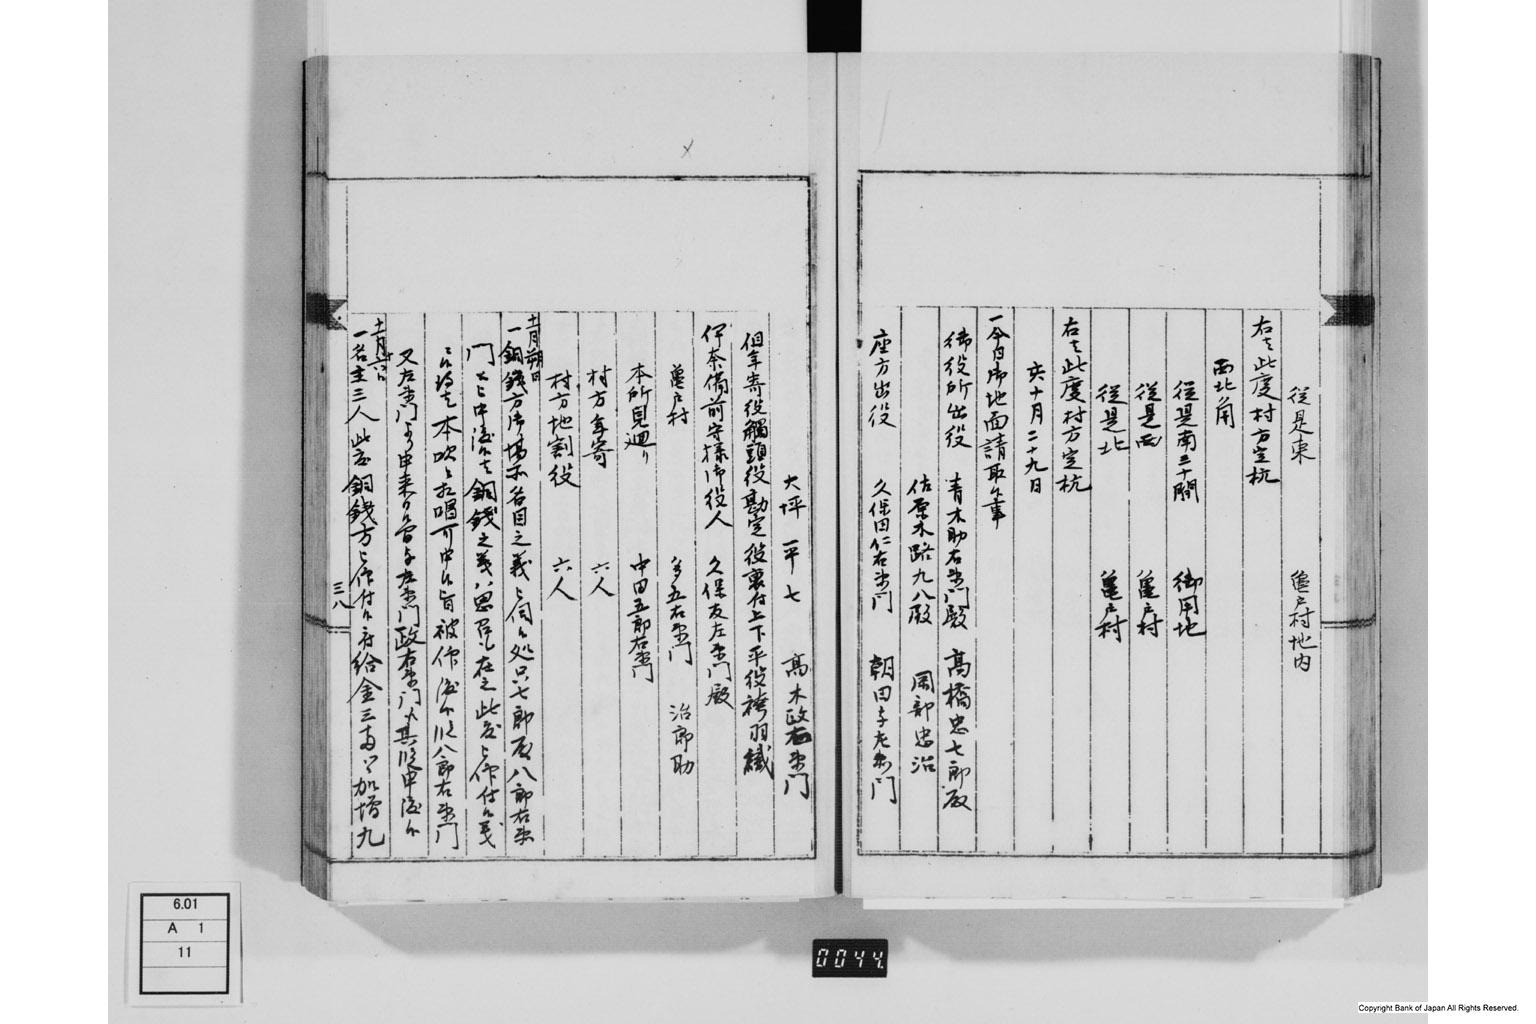 従是東　亀戸村地内
右者此度村方定杭
西北角
従是南三十間　御用地
従是西　亀戸村
従是北　亀戸村
右者此度村方定杭
亥十月二十九日
一今日御地面請取候事
御役所出役　青木助右衛門殿　高橋忠七郎殿
佐原木路九八殿　岡部忠治
座方出役　久保田仁右衛門　朝田与左衛門
大坪平七　高木政右衛門
但年寄役觸頭役勘定役裏付上下平役袴羽織
伊奈備前守様御役人　久保友左衛門殿
亀戸村　五右衛門　治郎助
本所見廻り　中田五郎右衛門
村方年寄　六人
村方地割役　六人
十一月朔日
一銅銭方御場所名目之義伺候処只七郎殿八郎右衛
門申渡候者銅銭之義八思召在之此度被仰付候義
候得者本吹与相唱可申候旨被仰渡候以八郎右衛門
又左衛門より申来候旨与左衛門政右衛門其段申渡候
一名主三人此度銅銭方被仰付候ニ付給金三両ツヽ加増九
三八
6.01
A 1
11
0044
Copyright Bank of Japan All Rights Reserved.